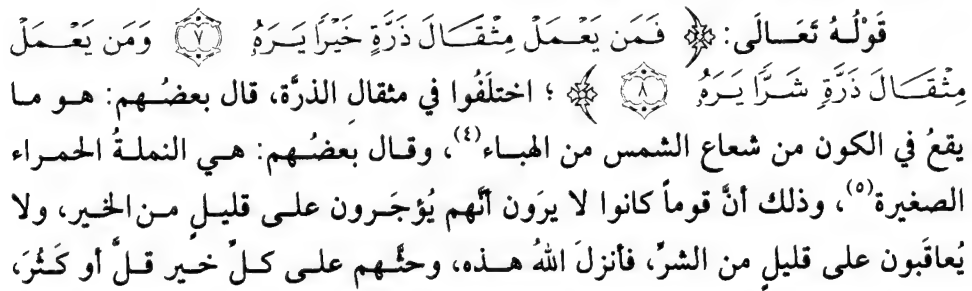 قَوْلُهُ تَعَالَى: ﴿ فَمَن يَعْمَلْ مِثْقَالَ ذَرَّةٍ خَيْرًا يَرَهُۥ ۝٧ وَمَن يَعْمَلْ
مِثْقَالَ ذَرَّةٍ شَرًّا يَرَهُۥ ۝٨ ﴾ ؛ اختلَفُوا في مثقالِ الذرَّة، قال بعضُهم: هو ما
يقعُ في الكون من شعاع الشمس من الهباء(٤)، وقال بعضُهم: هي النملةُ الحمراء
الصغيرة(٥)، وذلك أنَّ قوماً كانوا لا يرَون أنَّهم يُؤجَرون على قليلٍ من الخير، ولا
يُعاقَبون على قليلٍ من الشرِّ، فأنزلَ اللهُ هذه، وحثَّهم على كلِّ خير قلَّ أو كَثُرَ،